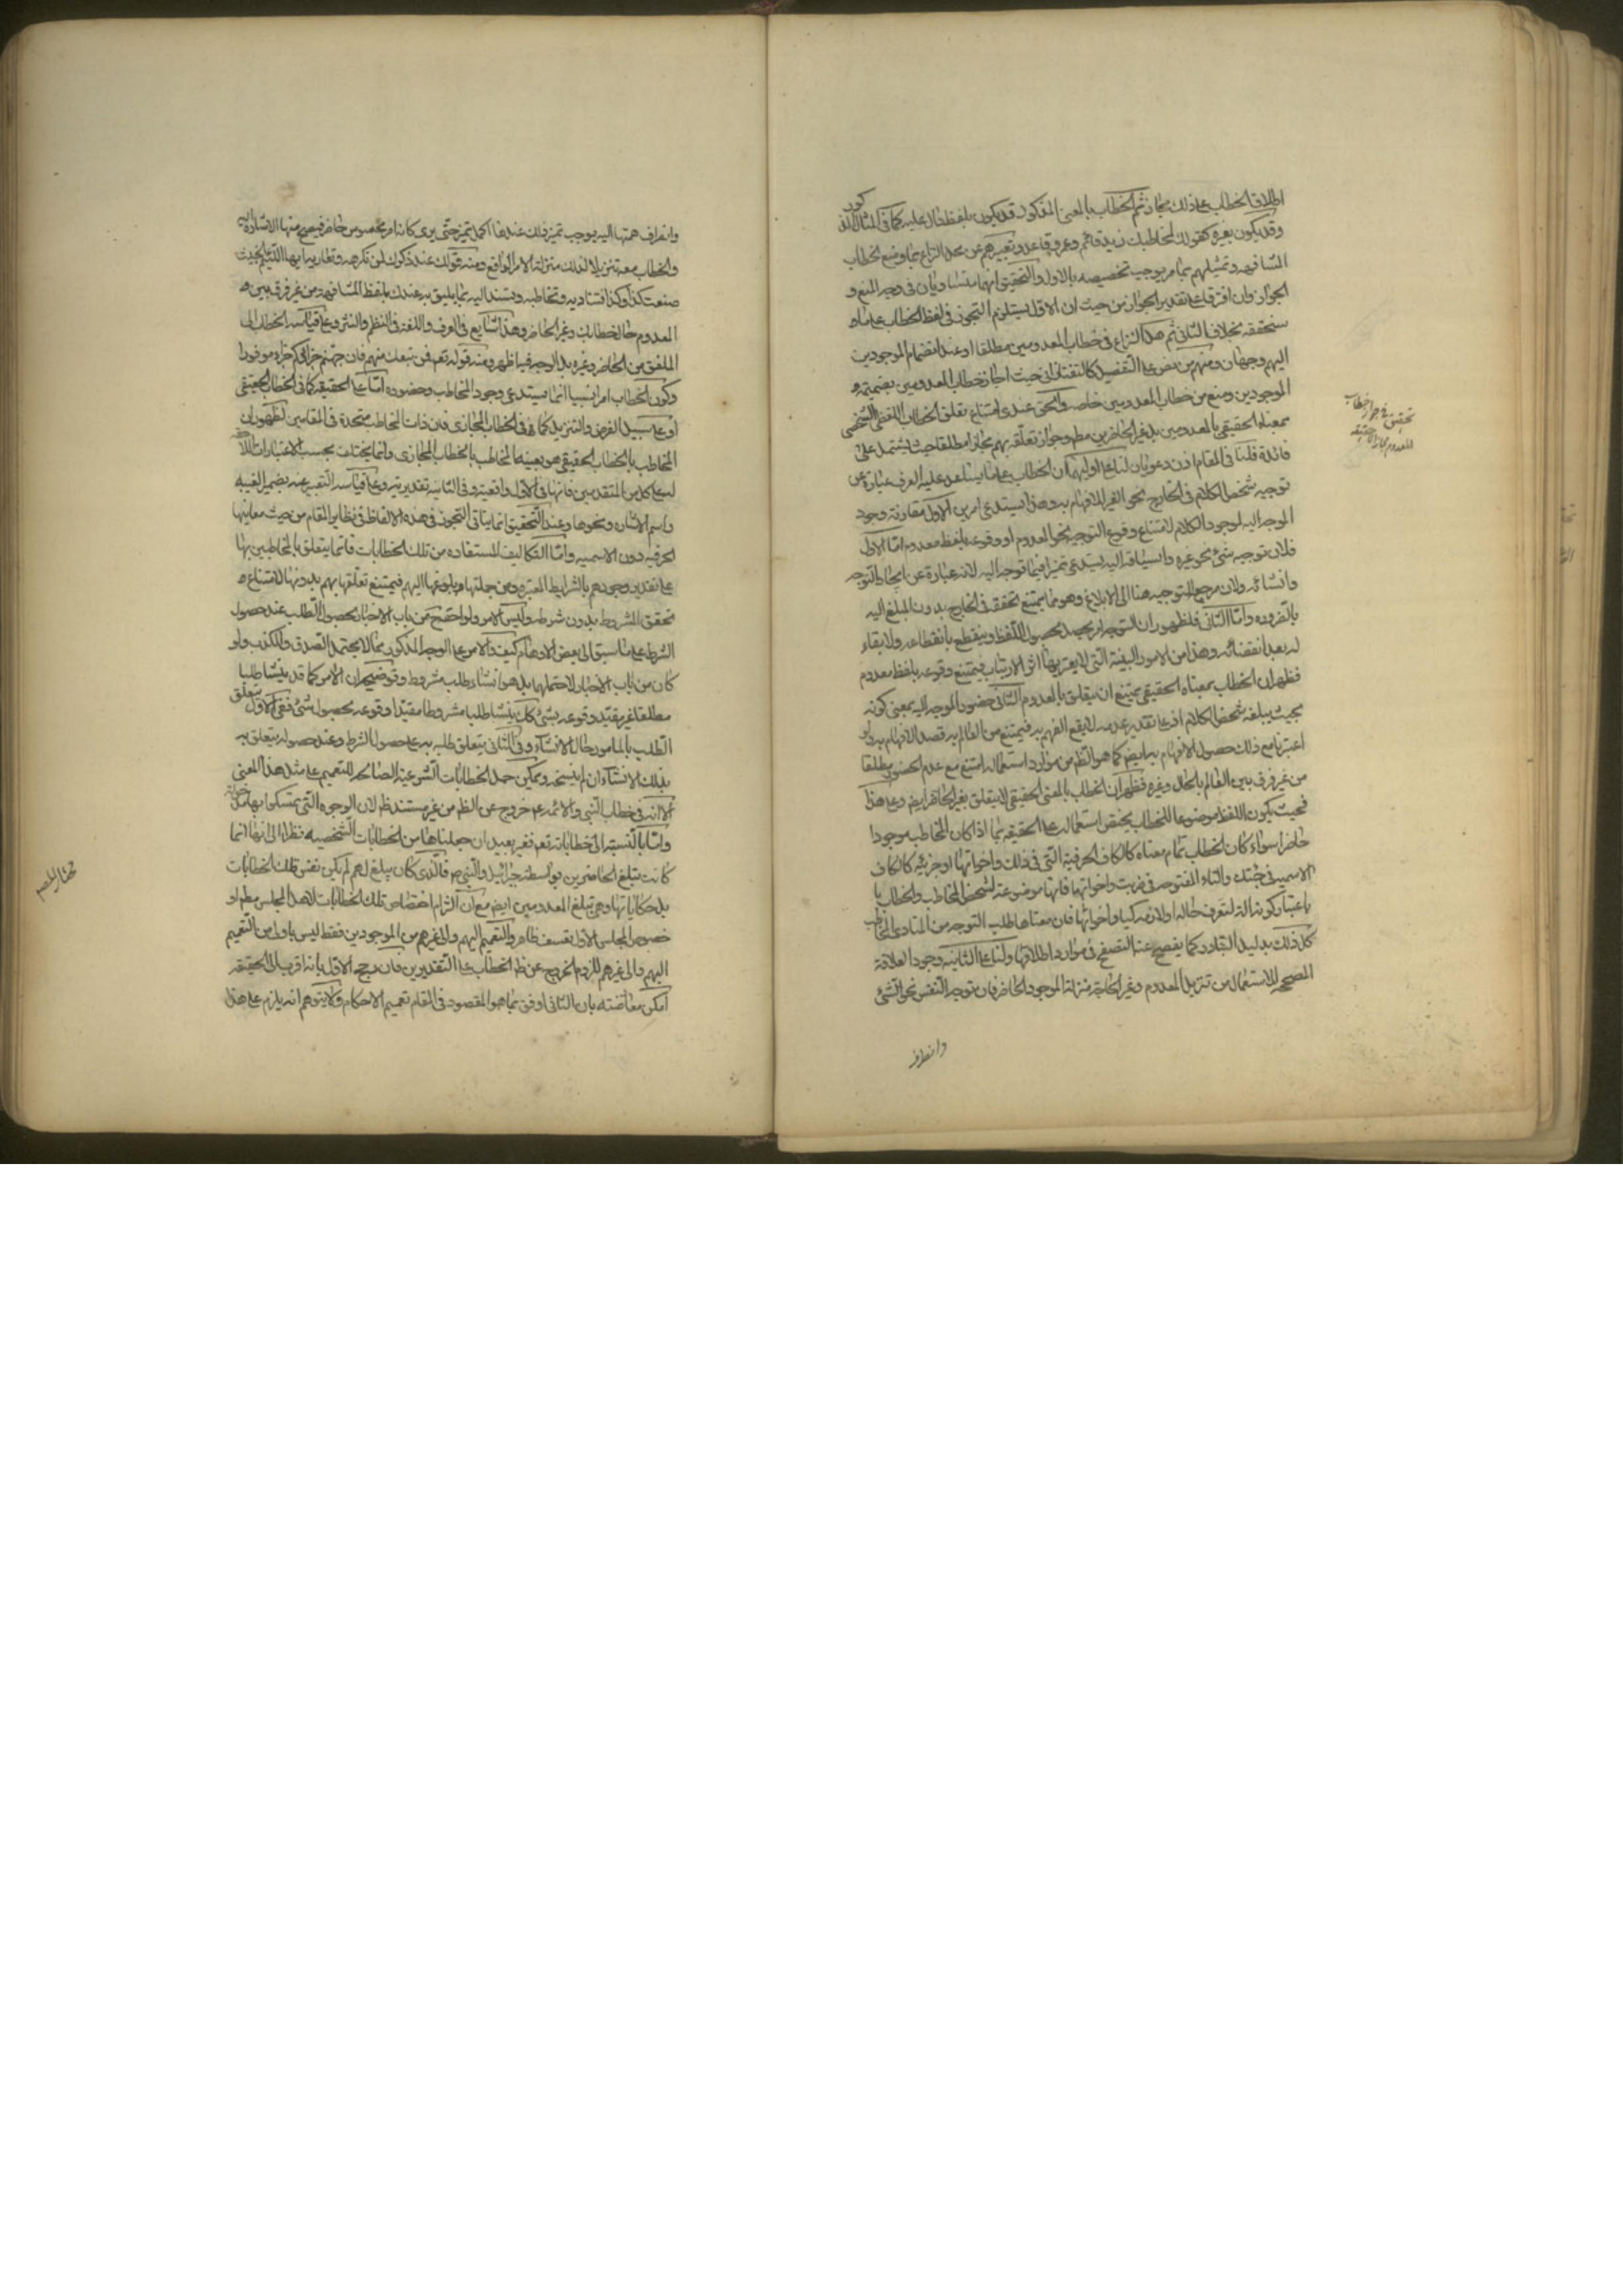 اطلاق الخطاب على ذلك مجاز ثم الخطاب بالمعنى المذكور قد يكون بلفظ دال عليه كما في المثال المذكور
وقد يكون بغيره كقولك لمخاطبك زيد قائم وعمرو قاعد وتعبيرهم عن محل النزاع بما وضع لخطاب
المشافهه وتمثيلهم بما مر يوجب تخصيصه بالاول والتحقيق انهما متساويان في وجه المنع و
الجواز وان افترقا على تقدير الجواز من حيث ان الاول يستلزم التجوز في لفظ الخطاب على ما
سنحققه بخلاف الثاني ثم هل النزاع في خطاب المعدومين مطلقا او عند انضمام الموجودين
اليهم وجهان ومنهم من نص على التفصيل كالتفتازاني حيث اجاز خطاب المعدومين بضميمة
الموجودين ومنع من خطاب المعدومين خاصه والحق عندي امتناع تعلق الخطاب اللفظي الشخصي
بمعناه الحقيقي بالمعدومين بل بغير الحاضرين مطم وجواز تعلقه بهم مجازا مطلقا حيث يشتمل على
فائدة فلنا في المقام اذن دعويان لنا على اوليهما ان الخطاب على ما يساعد عليه العرف عبارة عن
توجيه شخص الكلام في الخارج نحو الغير للافهام به وهذا يستدعي امرين الاول مقارنة وجود
الموجه اليه لوجود الكلام لامتناع وقوع التوجيه نحو المعدوم او وقوعه بلفظ معدوم اما الاول
فلان توجيه شئ نحو غيره وانسياقه اليه يستدعي تميزا فيما توجه اليه لانه عبارة عن ايجاد التوجه
وانشائه ولان مرجع التوجيه هنا الى الابلاغ وهو مما يمتنع تحققه في الخارج بدون المبلغ اليه
بالضروره واما الثاني فلظهور ان التوجه انما يحصل بحصول اللفظ وينقطع بانقطاعه ولا بقاء
له بعد انقضائه وهذا من الامور البينة التي لا يعتريها اثر الارتياب فيمتنع وقوعه بلفظ معدوم
فظهر ان الخطاب بمعناه الحقيقي يمتنع ان يتعلق بالمعدوم الثاني حضور الموجه اليه بمعنى كونه
بحيث يبلغه شخص الكلام اذ على تقدير عدمه لا يقع الفهم به فيمتنع من العالم به قصد الافهام به ولو
اعتبرنا مع ذلك حصول الافهام به ايض كما هو الظم من موارد استعماله امتنع مع عدم الحضور مطلقا
من غير فرق بين العالم بالحال وغيره فظهر ان الخطاب بالمعنى الحقيقي لا يتعلق بغير الحاضر ايض وعلى هذا
فحيث يكون اللفظ موضوعا للخطاب يختص استعماله على الحقيقه بما اذا كان المخاطب موجودا
حاضرا سواء كان الخطاب تمام معناه كالكاف الحرفية التي في ذلك واخواتها او جزئيه كالكاف
الاسميه في جئتك والتاء المفتوحه في ضربت واخواتها فانها موضوعة لشخص المخاطب والخطاب با
باعتبار كونه الة لتعرف حاله او لازمه كيا واخواتها فان معناها طلب التوجه من المنادى المخاطب
كل ذلك بدليل التبادر كما يفصح عنه التصفح في موارد اطلاقها ولنا على الثانيه وجود العلاقة
المصححه للاستعمال من تنزيل المعدوم وغير الحاضر منزلة الموجود الحاضر فان توجه النفس نحو الشئ
وانصراف
تحقيق في جواز خطاب
المعدوم مجازا لا حقيقه
وانصراف همتها اليه يوجب تميز ذلك عندها اكمل تميز حتى يرى كانه امر مخصوص حاضر فيصح منها الاشارة اليه
والخطاب معه تنزيلا لذلك منزلة الامر الواقع ومنه قولك عند ذكرك لمن تكرهه ايها اللئيم الخبيث
صنعت كذا وكذا فتناديه وتخاطبه وتسند اليه بما يليق به عندك بلفظ المشافهة من غير فرق بين
المعدوم حال خطابك وغير الحاضر وهذا شايع في العرف واللغة في النظم والنثر وعلى قياسه الخطاب الى
الملفق من الحاضر وغيره بل الوجه فيه اظهر ومنه قوله تعم فمن تبعك منهم فان جهنم جزاؤكم جزاء موفورا
وكون الخطاب امرا نسبيا انما يستدعي وجود المخاطب وحضوره اما على الحقيقه كما في الخطاب الحقيقي
او على سبيل الفرض والتنزيل كما في الخطاب المجازي فان ذات المخاطب متحدة في المقامين لظهور ان
المخاطب بالخطاب الحقيقي هو بعينه المخاطب بالخطاب المجازي وانما يختلف بحسب الاعتبارات اللاحقه
له على كل من المتقدمين فانها في الاول واقعية وفي الثانيه تقديرية وعلى قياسه التعبير عنه بضمير الغيبه
واسم الاشاره ونحوها وعند التحقيق انما ياتي التجوز في هذه الالفاظ في نظاير المقام من حيث معانيها
الحرفيه دون الاسميه واما التكاليف المستفاده من تلك الخطابات فانما يتعلق بالمخاطبين بها
على تقدير وجودهم بالشرايط المعتبره ومن جملتها بلوغها اليهم فيمتنع تعلقها بهم بدونها لامتناع
تحقق المشروط بدون شرطه وليس الامر ولو احتمح من باب الاخبار بحصول الطلب عند حصول
الشرط على ما سبق الى بعض الاوهام كيف والامر على الوجه المذكور مما لا يحتمل الصدق والكذب ولو
كان من باب الاخبار لاحتملهما بل هو انشاء طلب مشروط وتوضيحه ان الامر كما قد ينشا طلبا
مطلقا غير مقيد وقوعه بشئ كك ينشا طلبا مشروطا مقيدا وقوعه بحصول شئ ففي الاول يتعلق
الطلب بالمامور حال الانشاء وفي الثاني يتعلق طلبه به على حصول الشرط وعند حصوله يتعلق به
بذلك الانشاء ان لم ينسخه ويمكن حمل الخطابات الشرعية الصالحه للتعميم على مثل هذا المعنى
الا انه في خطاب النبي والائمه ع خروج عن الظم من غير مستند ظم لان الوجوه التي يتمسكوا بها
واما بالنسبة الى خطاباته تعم فغير بعيد ان جعلناها من الخطابات الشخصيه نظرا الى انها انما
كانت تبلغ الحاضرين بواسطة جبرائيل والنبي ص فالذي كان يبلغ لهم لم يكن نفس تلك الخطابات
بل حكاياتها وهي تبلغ المعدومين ايض مع ان التزام اختصاص تلك الخطابات لاهل المجلس مطم او
خصوص المجلس الاول تعسف ظاهر والتعميم اليهم والى غيرهم من الموجودين فقط ليس باولى من التعميم
اليهم والى غيرهم للزوم الخروج عن ظم الخطاب على التقديرين فان رجح الاول بانه اقرب الى الحقيقه
امكن معارضته بان الثاني اوفق بما هو المقصود في المقام تعميم الاحكام ولا يتوهم انه يلزم على هذا